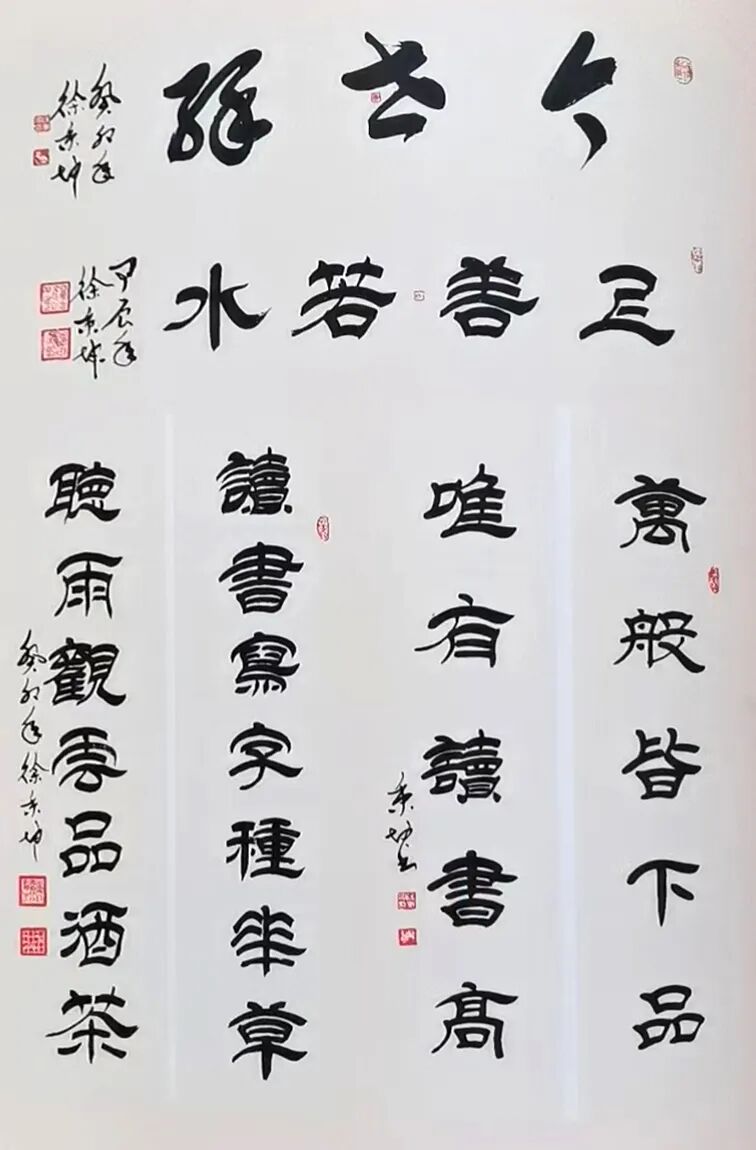 今世緣
癸卯年
徐秉坤
上善若水
甲辰年
徐秉坤
萬般皆下品
唯有讀書高
秉坤书
讀書寫字種華草
聽雨觀雲品酒茶
癸卯年徐秉坤